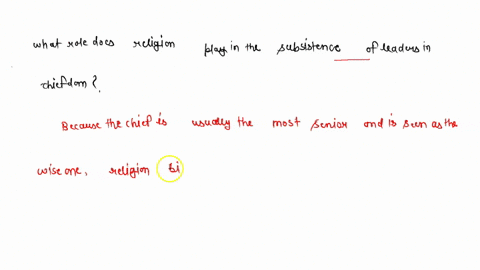 what role does religion play in the subsistence of leaders in
chiefdom?
Because the chief is usually the most senior and is seen as the
wise one, religion si